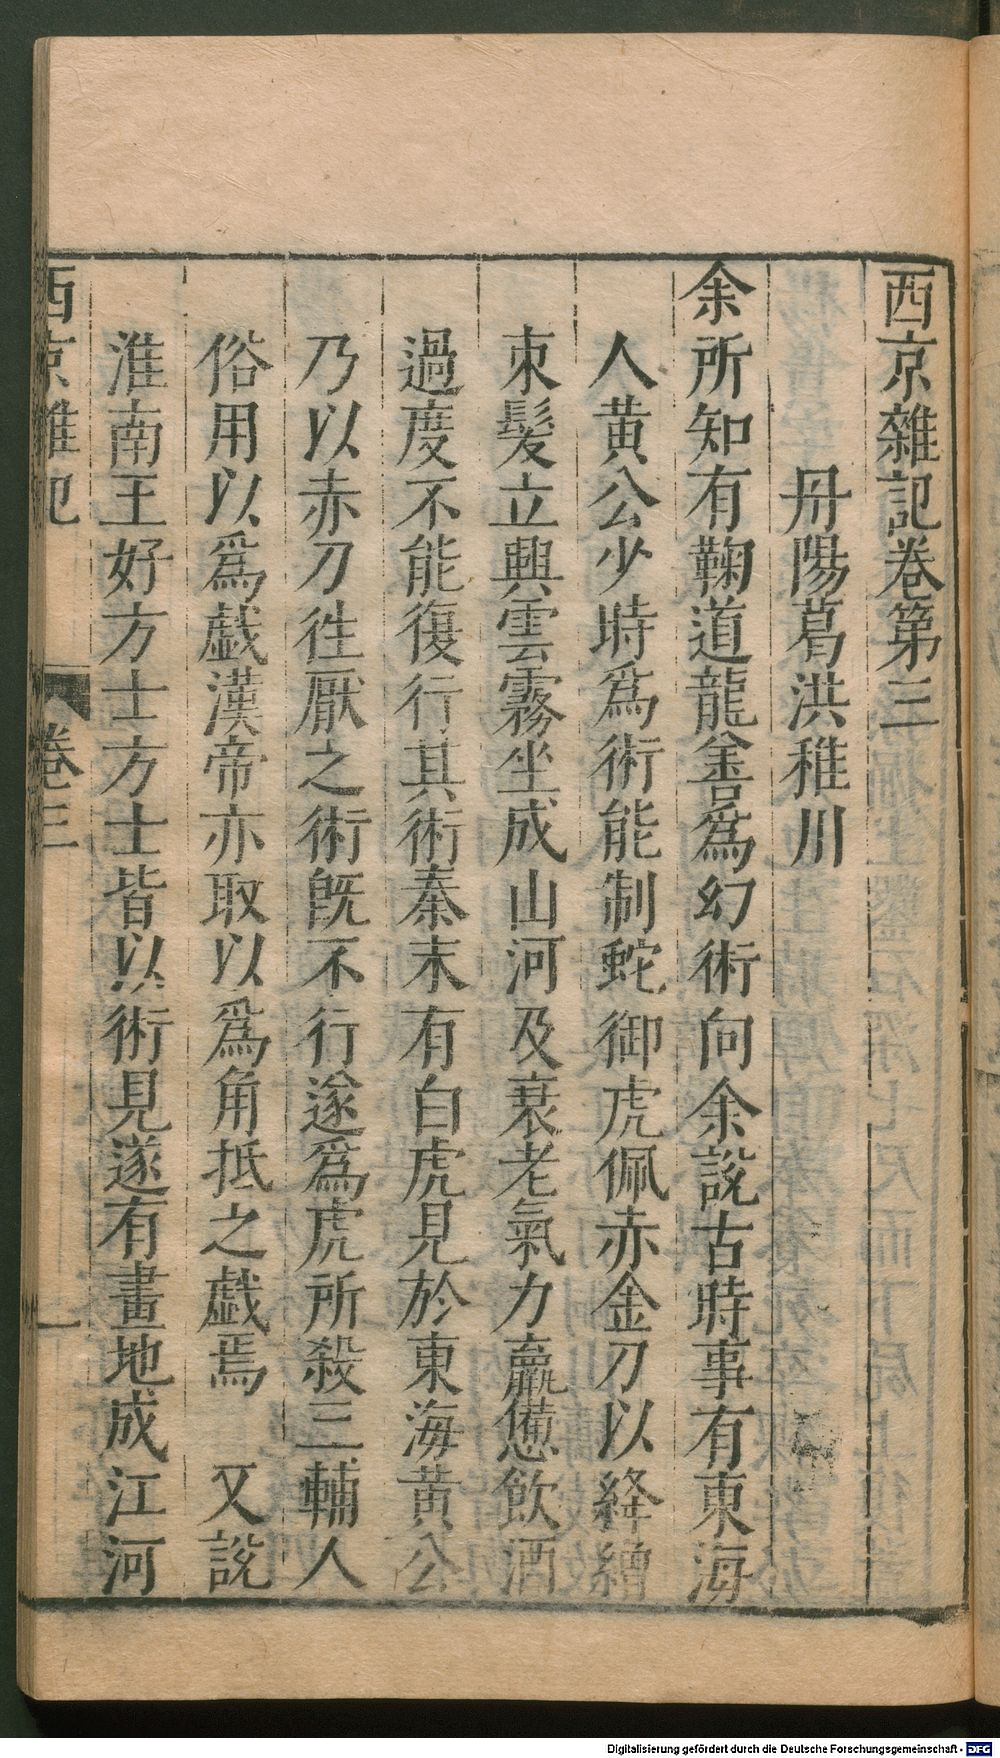 西京雜記卷第三
丹陽葛洪稚川
余所知有鞠道龍善爲幻術向余說古時事有東海
人黃公少時爲術能制蛇御虎佩赤金刀以絳繒
束髮立興雲霧坐成山河及衰老氣力羸憊飲酒
過度不能復行其術秦末有白虎見於東海黃公
乃以赤刀徃厭之術旣不行遂爲虎所殺三輔人
俗用以爲戱漢帝亦取以爲角抵之戱焉　又說
淮南王好方士方士皆以術見遂有畫地成江河
西京雜記
卷三
一
Digitalisierung gefördert durch die Deutsche Forschungsgemeinschaft - DFG